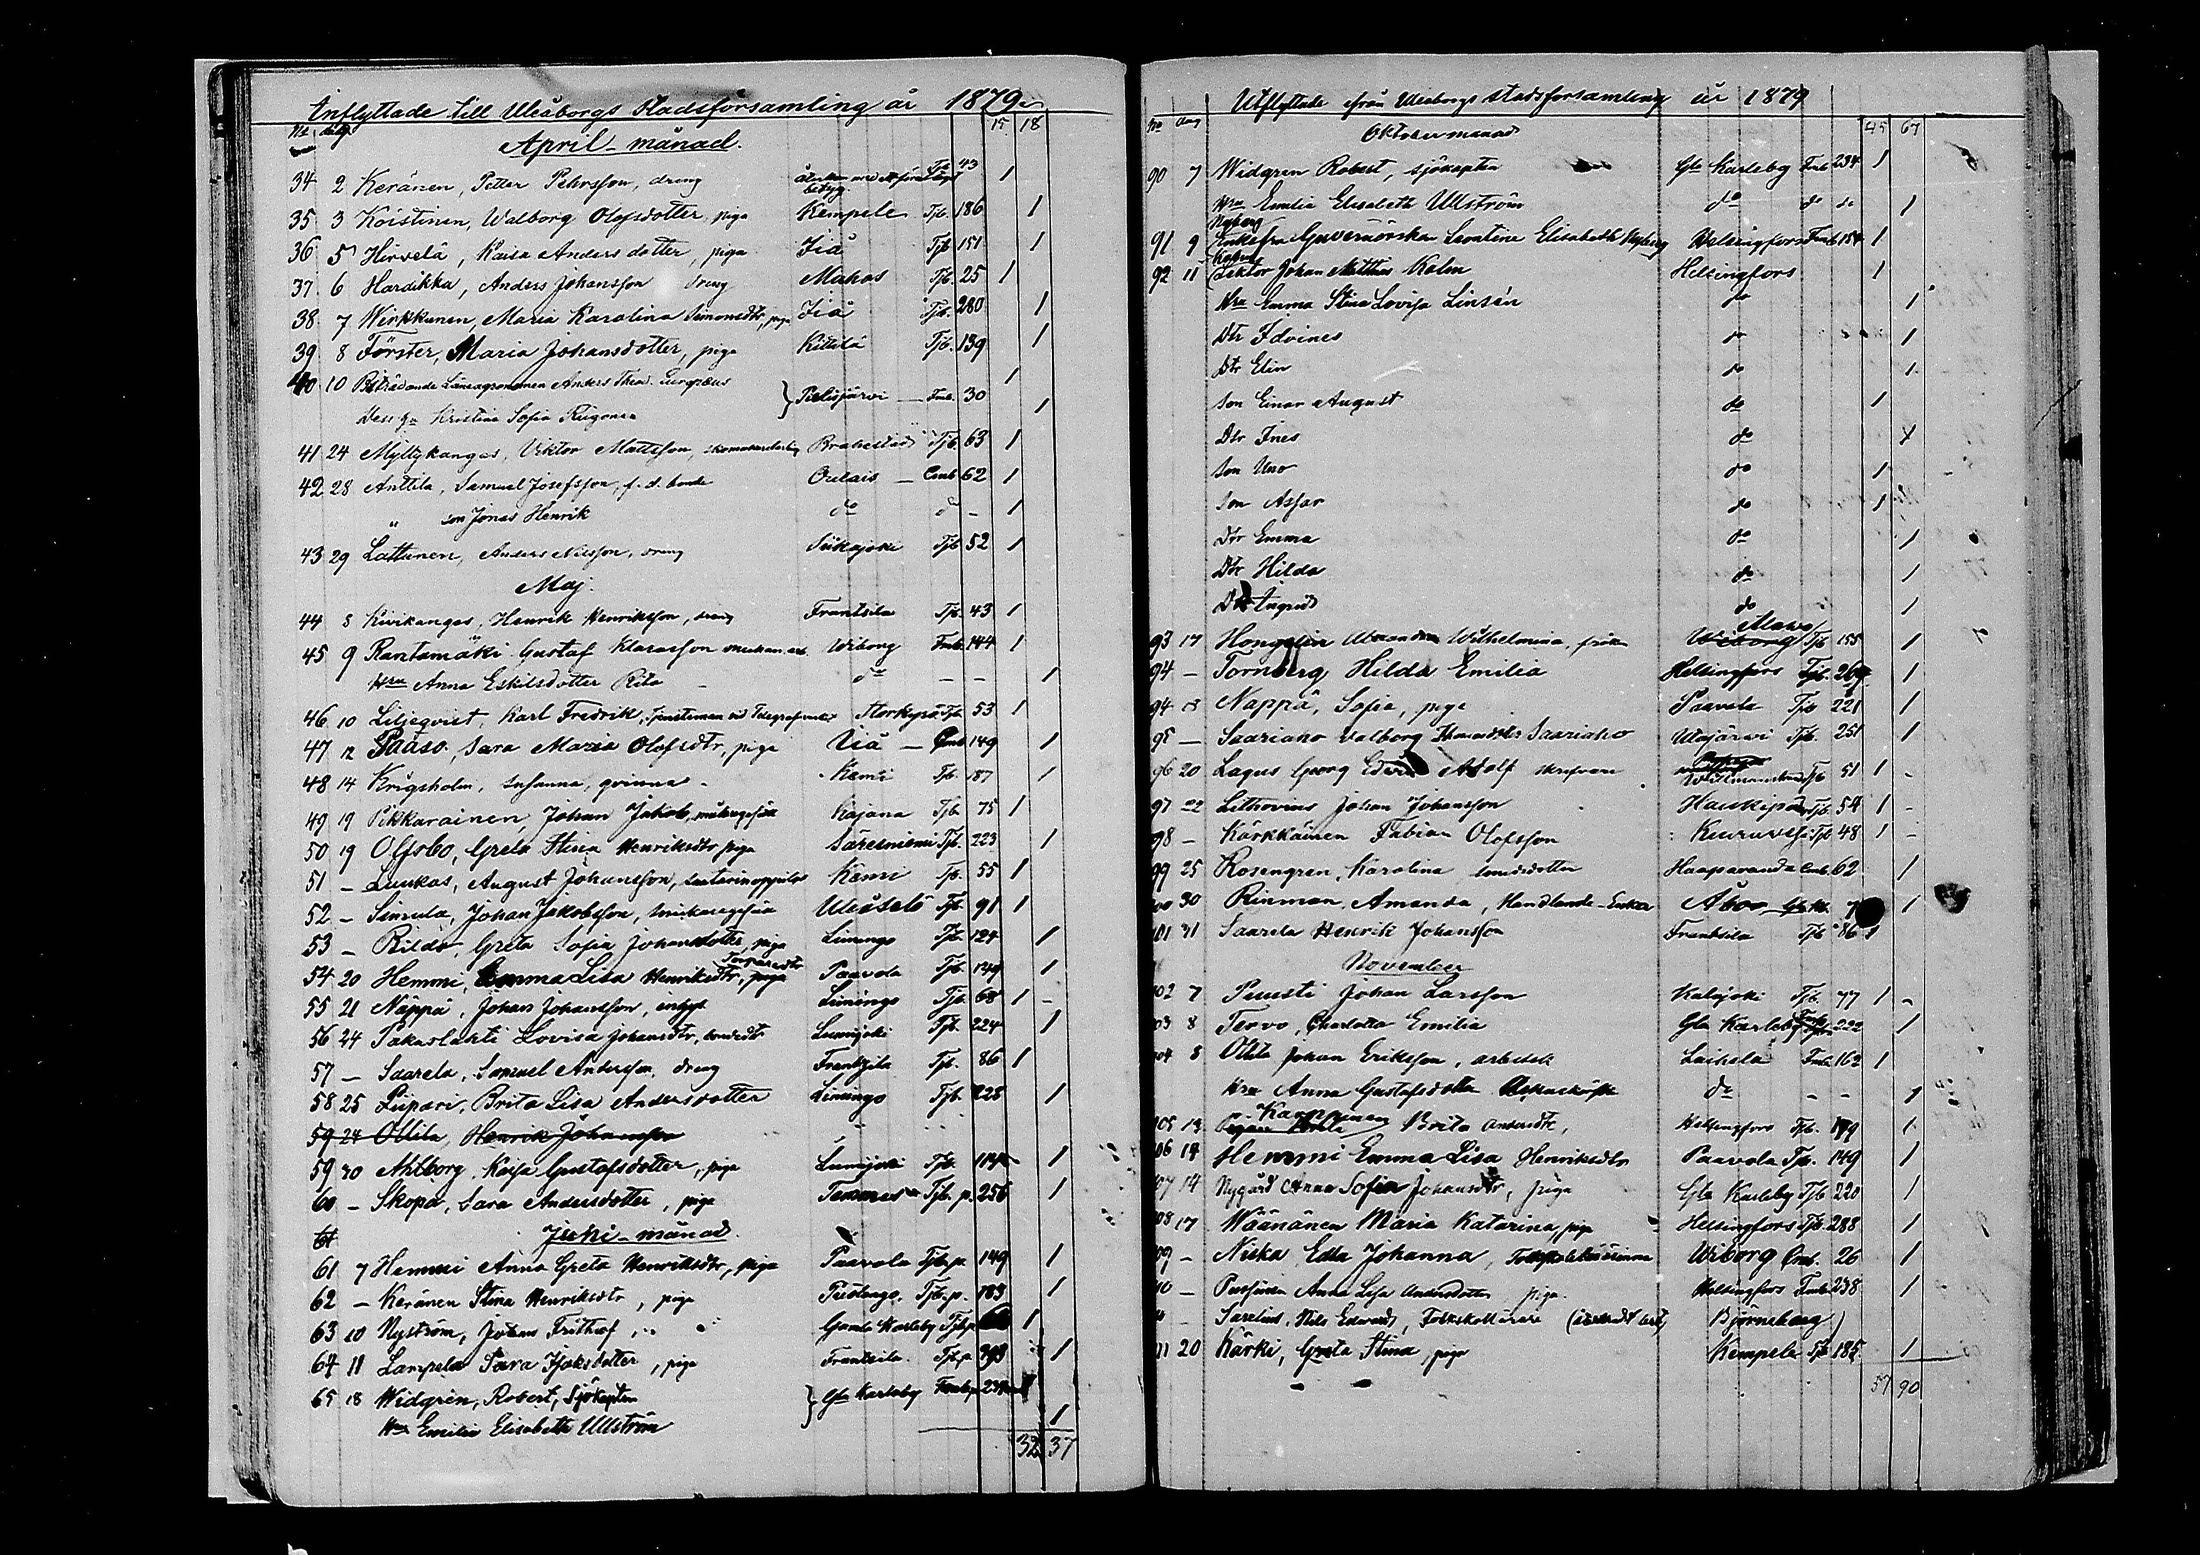 Inflyttade till Uleåborgs Stadsförsamling år 1879
No dag 15 18
April månad.
34 2 Keränen, Petter Pehrsson, dreng 43 1
35 3 Koistinen, Walborg Olofsdotter, piga Kempele Tjb. 186 1
36 5 Hirvelä, Kaisa Andersdotter, piga Jiå Tjb. 151 1
37 6 Hardikka, Anders Johansson dreng Muhos Tjb. 25 1
38 7 Wirkkunen, Maria Karolina Simonsdtr, piga Jiå Tjb. 280 1
39 8 Förster, Maria Johansdotter, piga Kittilä Tjb. 139 1
40 10 Biträdande Länsagronomen Anders Theod. Europæus Pielisjärvi Fmb. 30 1
Dess h:u Kristina Sofia 1
41 24 Myllykangas, Viktor Mattsson, Brahestad Tjb. 63 1
42 28 Anttila, Samuel Josefsson, f. d. bonde Oulais Cmb 62 1
" son Jonas Henrik do do - 1
43 29 Lattunen, Anders Nilsson, dreng Siikajoki Tjb 52 1
Maj.
44 8 Kivikangas, Henrik Henriksson, dreng Frantsila Tjb. 43 1
45 9 Rantamäki Gustaf Klaasson Wiborg Fmb. 144 1
Hru Anna Eskilsdotter Rita do - - 1
46 10 Liljeqvist, Karl Fredrik, Tjensteman vid Telegrafverket Storkyro Tjb. 53 1
47 12 Pääso, Sara Maria Olofsdtr, piga Jiå Cmb 149 1
48 14 Krigsholm, Susanna, qvinna Kemi Tjb. 187 1
49 19 Pikkarainen, Johan Jakob, Kajana Tjb. 75 1
50 19 Olfsbo, Greta Stina Henriksdtr piga Säresniemi Tjb. 223 1
51 - Luukas, August Johansson, Kemi Tjb. 55 1
52 - Simula, Johan Jakobsson, Uleåsalo Tjb. 91 1
53 - Rildo, Greta Sofia Johansdotter, piga Limingo Tjb. 124 1
54 20 Hemmi, Emma Lisa Henriksdtr, piga Paavola Tjb. 149 1
55 21 Näppä, Johan Johansson, Limingo Tjb. 68 1 -
56 24 Pakaslahti Lovisa Johansdtr, bondedtr Lumijoki Tjb. 224 1
57 - Saarela, Samuel Andersson, dreng Frantsila Tjb. 86 1
58 25 Liipari, Brita Lisa Andersdotter Limingo Tjb. 228 1
59 24 Ollila, Henrik Johansson
59 30 Ahlborg, Kajsa Gustafsdotter, piga Lumijoki Tjb. 1
60 - Skopa, Sara Andersdotter, piga Temmes Tjb. p. 256 1
61 Juni månad.
61 7 Hemmi Anna Greta Henriksdtr, piga Paavola Tjb. p. 149 1
62 - Keränen Stina Henriksdtr, piga Tjb. p. 183 1
63 10 Nyström, Johan Frithiof, Gamla Karleby Tjb. p. 1
64 11 Lampela Sara Isaksdotter, piga Frantsila. Tjb. p. 293 1
65 18 Widgrén, Robert, Sjökapten Gla Karleby Fmb. p. 234 1
Hru Emilia Elisabeth Ullström 1
32 37
Utflyttade ifrån Uleåborgs stadsförsamling år 1879
No dag 45 67
Oktober månad
90 7 Widgren Robert, sjökapten Gla Karleby Fmb 234 1
Hru Emilia Elisabeth Ullström do do do 1
Nyberg
91 9 Enkefru Guvernörska Leontine Elisabeth Nyberg Helsingfors Fmb. 154 1
Kalm
92 11 Lektor Johan Matthias Kalm Helsingfors 1
Hru Emma Stina Lovisa Linsén do 1
Dtr Idvines do 1
Dtr Elin do 1
Son Einar August do 1
Dtr Ines do 1
Son Uno do 1
Son Assar do 1
Dtr Emma do 1
Dtr Hilda do 1
Dtr Ingrid do 1
93 17 Alexandra Wilhelmina, fröken Wiborg Tjb 155 1
94 - Tornberg Hilda Emilia Helsingfors Tjb. 269 1
94 18 Nappä, Sofia, piga Paavola Tjb 221 1
95 - Saariaho Valborg Thomasdtr Saariaho Utajärvi Tjb. 251 1
96 20 Lagus Georg Edvard Adolf skrifvare Willmanstrand Tjb 51 1 -
97 22 Lithovius Johan Johansson Haukipudas Tjb. 54 1 -
98 - Kärkkäinen Fabian Olofsson Kiuruvesi Tjb. 48 1 -
99 25 Rosengren, Karolina Haaparanda Cmb. 62 1
100 30 Rinman, Amanda, Handlande-Enka Åbo 1
101 31 Saarela Henrik Johansson Frantsila Tjb 86 1
November
102 7 Puusti Johan Larsson Kalajoki Tjb. 77 1 -
103 8 Tervo, Charlotta Emilia Gla Karleby 222 1
104 8 Ollila Johan Eriksson, arbetsk Laihela Fmb. 162 1
Hru Anna Gustafsdotter do - - 1
Karppinen
105 13 Brita Andersdtr, Helsingfors Tjb. 199 1
106 14 Hemmi Emma Lisa Henriksdtr Paavola Tjb. 149 1
107 14 Nygård Anna Sofia Johansdtr, piga Gla Karleby Tjb 220 1
108 17 Wäänänen Maria Katarina, piga Helsingfors Tjb. 288 1
109 - Niska Edla Johanna, Folkskolelärarinna Wiborg Cmb. 26 1
110 - Anna Lisa Andersdotter piga Helsingfors Fmb. 238 1
- Sarelius, Nils Edvard, Folkskollärare Björneborg
111 20 Kärki, Greta Stina, piga Kempele Tjb 185 1
57 90